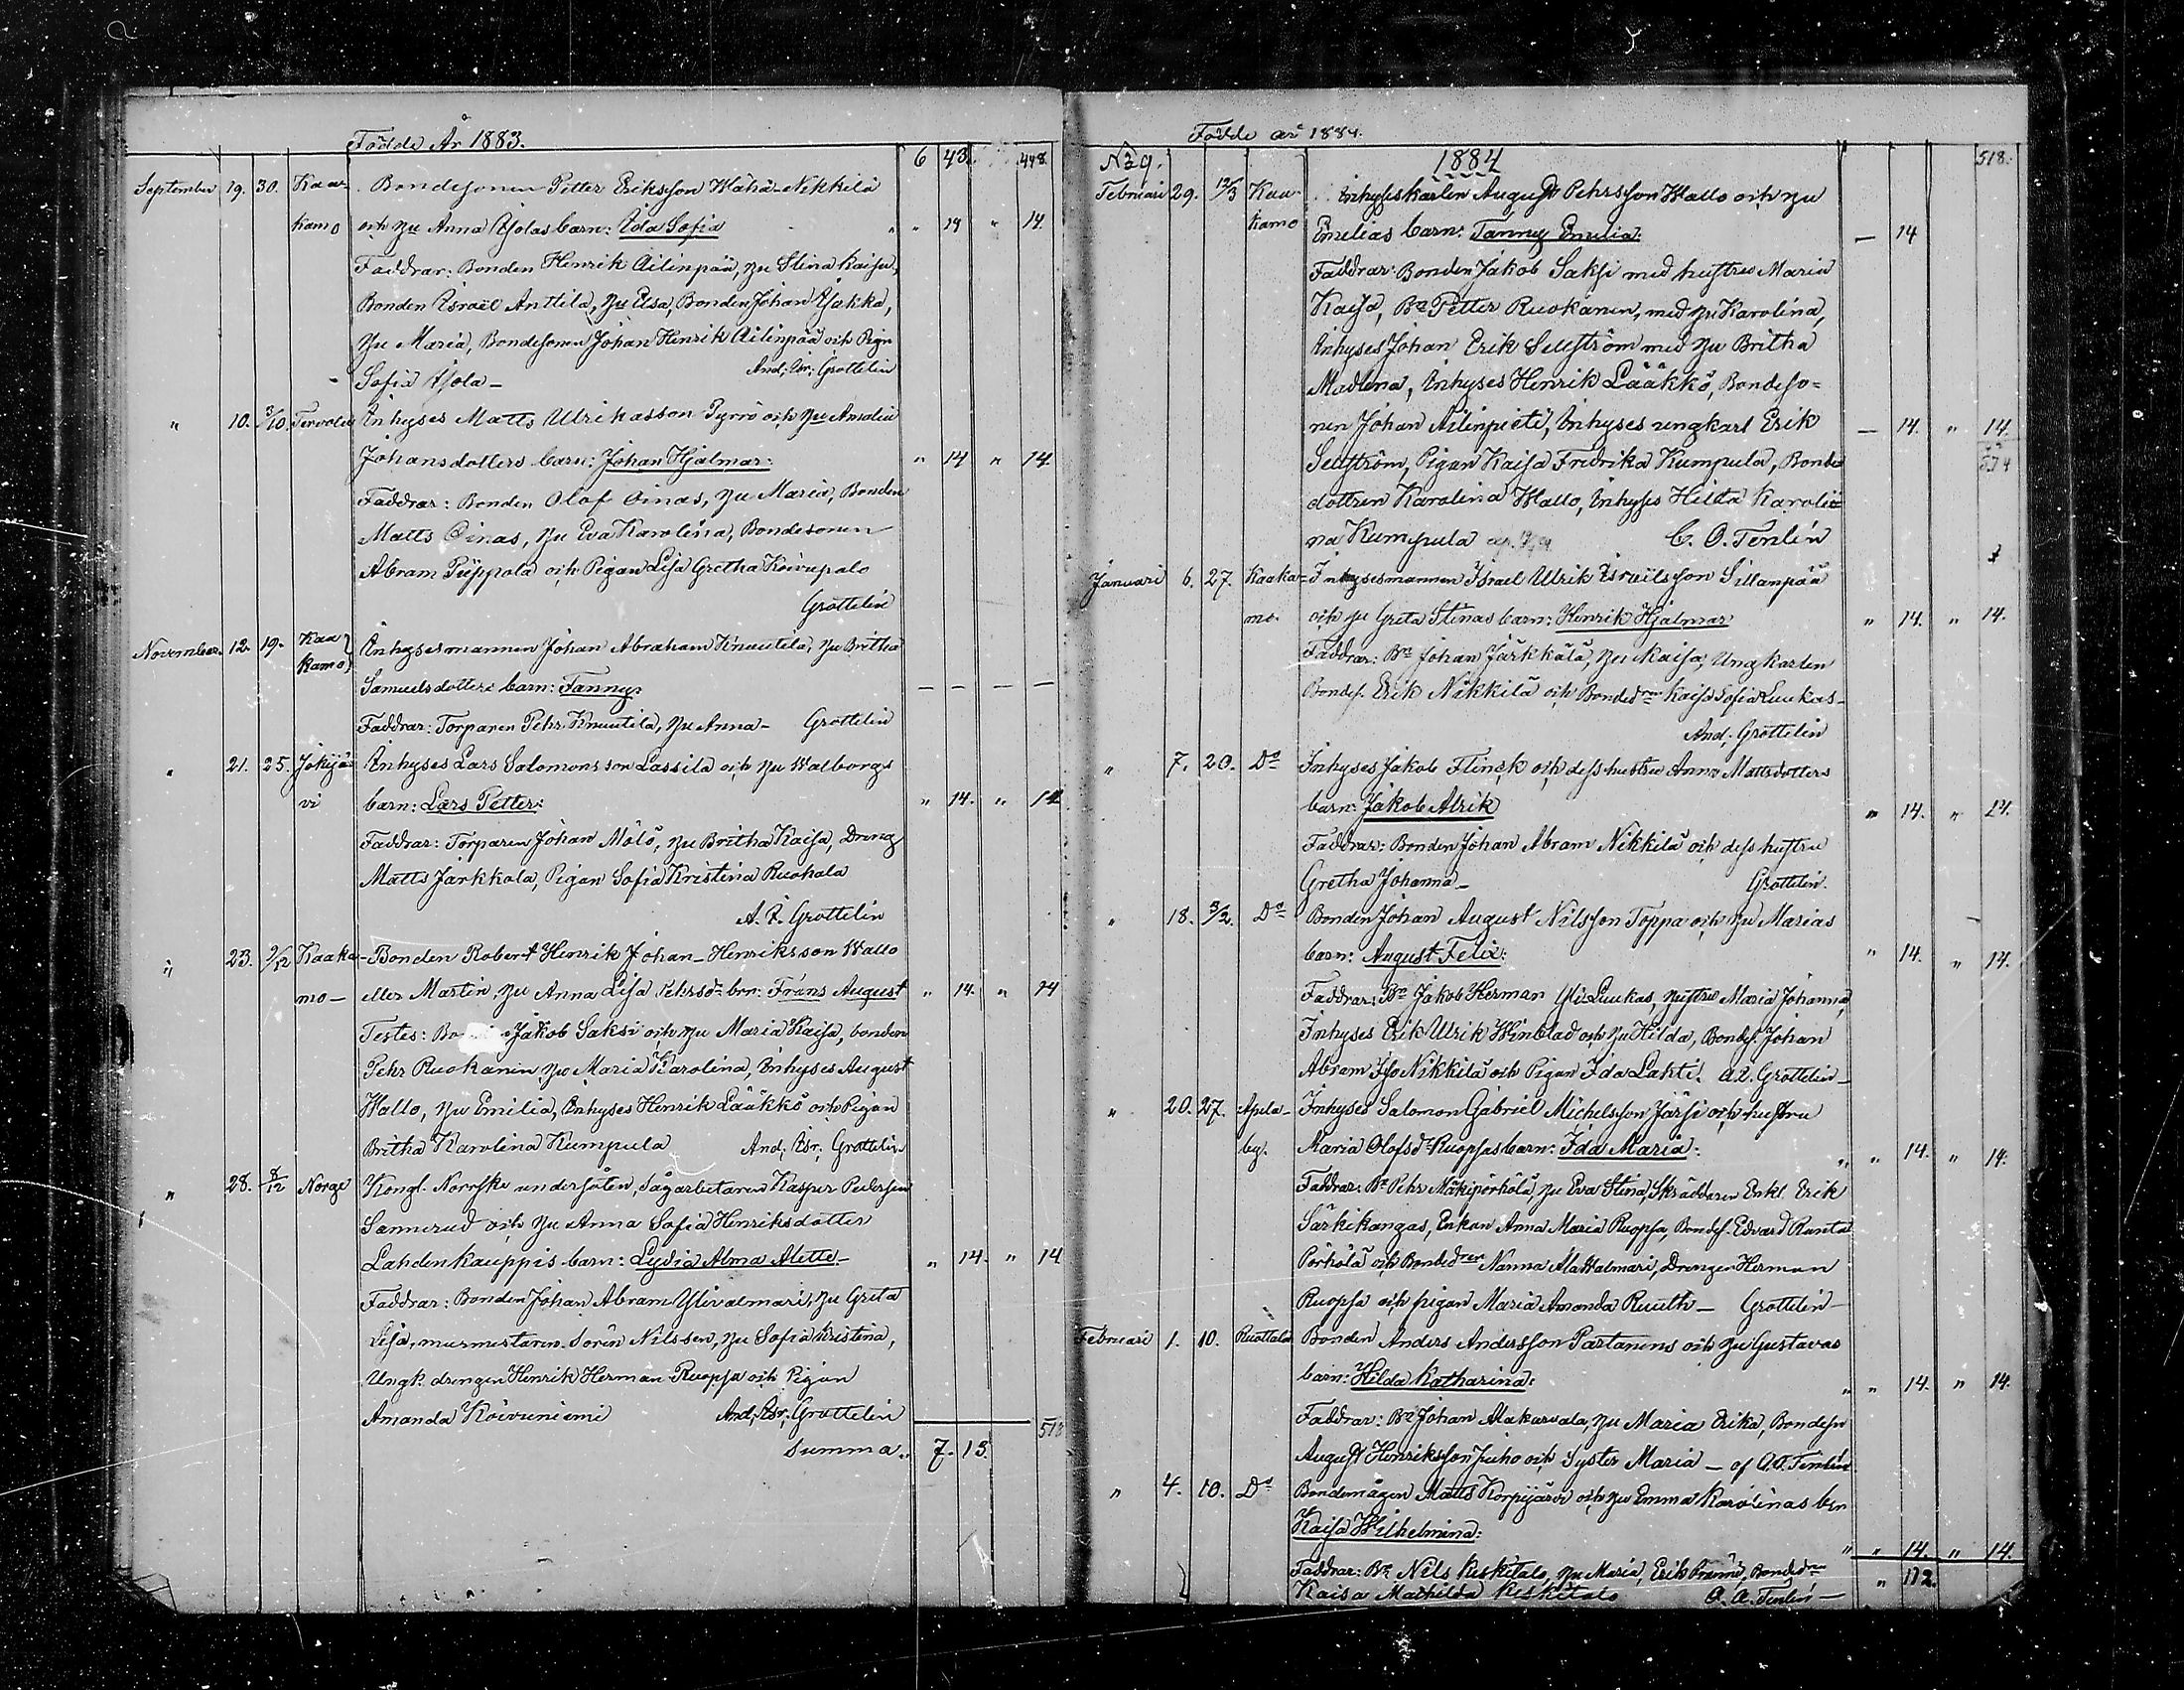 Födde År 1883.
6 43. 448
September 19. 30. Kaa- Bondesonen Petter Eriksson Wähä-Nikkilä
kamo och hu Anna Isolas barn: Ida Sofia " 14 " 14.
Faddrar: Bonden Henrik Ailinpää, hu Stina Kaisa,
Bonden Israel Anttila, hu Elsa, Bonden Johan
hu Maria, Bondesonen Johan Henrik Ailinpää och Pigan
Sofia And; Isr; Grottelin
" 10. 3/10. Tervola Inhyses Matts Ulrikasson Pyrrö och hu Amalia
Johansdotters barn: Johan Hjalmar: " 14 " 14.
Faddrar: Bonden Olof Oinas, hu Maria, Bonden
Matts Oinas, hu Eva Karolina, Bondesonen
Abram och Pigan Lisa Gretha Koivupalo
Grottelin
November 12. 19. Kaa Inhysesmannen Johan Abraham Knuutila, hu Britha
kamo Samuelsdotters barn: Fanny: — — — —
Faddrar: Torparen Pehr Knuutila, hu Anna — Grottelin
" 21. 25. Jokijär Inhyses Lars Salomonsson Lassila och hu Walborgs
vi barn: Lars Petter: " 14. " 14
Faddrar: Torparen Johan Mölö, hu Britha Kaisa, Dreng
Matts Järkkälä, Pigan Sofia Kristina Ruokala
A. I. Grottelin
" 23. 9/12 Kaaka- Bonden Robert Henrik Johan-Henriksson Wallo
mo — eller Martin, hu Anna Lisa Pehrsdr brn: Frans August " 14. " 14
Testes: Jakob Saksi och hu Maria Kaisa, bonden
Pehr Ruokanen hu Maria Karolina, Inhyses August
Wallo, hu Emilia, Inhyses Henrik Lääkkö och Pigan
Britha Karolina Kumpula And; Isr; Grottelin
" 28. 8/12 Norge Kongl. Norrske undersåten, Sågarbetaren Kasper Pedersen
Sannerud och hu Anna Sofia Henriksdotter
Lahdenkauppis barn: Lydia Alma Alette — " 14. " 14
Faddrar: Bonden Johan Abram Ylivalmari, hu Greta
Lisa, murmestaren Sören Nilssen, hu Sofia Kristina,
Ungk. drengen Henrik Herman Ruopsa och Pigan
Amanda Koivuniemi And; Isr; Grottelin
518
Summa.. 7. 13.
Födde år 1884.
N:29. 1884 518.
Februari 29. 12/3 Kaa- Inhyseskarlen August Pehrsson Wallo och hu
kamo Emelias barn: Fanny Emilia: — 14
Faddrar: Bonden Jakob Saksi med hustru Maria
Kaisa, Bn Petter Ruokanen, med hu Karolina,
Inhyses Johan Erik Seuström med hu Britha
Madlena, Inhyses Henrik Lääkkö, Bondeso=
nen Johan Ailinpieti, Inhyses ungkarl Erik — 14. " 14.
Seuström, Pigan Kaisa Fredrika Kumpula, Bonde
dottren Karolina Wallo, Inhyses Hilda Karoli=
na Kumpula C. O. Tenlén
Januari 6. 27. Kaaka- Inhysesmannen Israel Ulrik Israelsson Sillanpää
mo. och hu Greta Stinas barn: Henrik Hjalmar " 14. " 14.
Faddrar: Bn Johan Järkkälä, hu Kaisa, Ungkarlen
Bondes. Erik Nikkilä och Bondedrn Kaisa Sofia Luukas —
And; Grottelin
" 7. 20. Do Inhyses Jakob Flinck och dess hustru Anna Mattsdotters
barn: Jakob Alrik " 14. " 14.
Faddrar: Bonden Johan Abram Nikkilä och dess hustru
Gretha Johanna — Grottelin.
" 18. 3/2. Do Bonden Johan August Nilsson Toppa och hu Marias
barn: August Felix: " 14. " 14.
Faddrar: Bn Jakob Herman Yli Luukas, hustru Maria Johanna,
Inhyses Erik Ulrik Winblad och hu Hilda, Bondes. Johan
Abram Iso Nikkilä och Pigan Ida Lahti. A. I. Grottelin —
" 20. 27. Apula- Inhyses Salomon Gabriel Michelsson Järsi och hustru
by. Maria Olofsdr Ruopsas barn: Ida Maria: " " 14. " 14.
Faddrar: Bn Pehr Mäkipörhölä, hu Eva Stina, Skräddaren Enkl. Erik
Särkikangas, Enkan Anna Maria Ruopsa, Bondes. Edvard Ranta
Pörhölä och Bondedren Nanna Alawalmari, Drengen Herman
Ruopsa och pigan Maria Amanda Ruuth — Grottelin —
Februari 1. 10. Ruottala Bonden Anders Andersson Partanens och hu Gustavas
barn: Hilda Katharina: " " 14. " 14.
Faddrar: Bn Johan Makarvala, hu Maria Erika, Bondeson
August Henriksson Juho och Syster Maria — af O. A. Tenlén
" 4. 10. Do Bondemågen Matts Korpijärvi och hu Emma Karolinas brn
Kaisa Wilhelmina: " " 14. " 14.
Faddrar: Bn Nils Keskitalo, hu Maria, Erik Bondedrn
Kaisa Mathilda Keskitalo O. A. Tenlén — " 112.